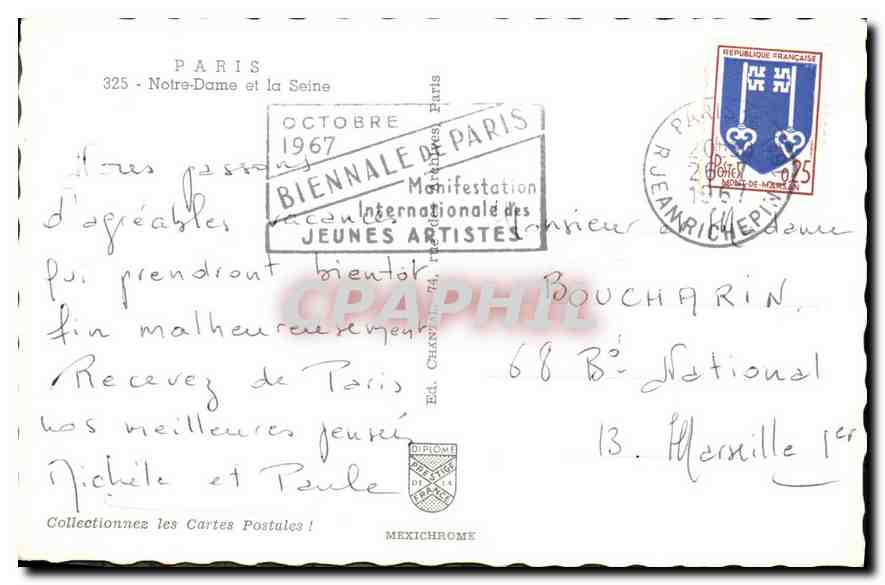 PARIS
325 - Notre-Dame et la Seine
OCTOBRE
1967
BIENNALE DE PARIS
Manifestation
Internationale des
JEUNES ARTISTES
REPUBLIQUE FRANÇAISE
POSTES
0,25
MONT-DE-MARSAN
PARIS
20H
26
1967
R JEAN RICHEPIN
Nous passons
d'agréables vacances
qui prendront bientôt
fin malheureusement
Recevez de Paris
nos meilleures pensées
Michèle et Paule
Monsieur et Madame
BOUCHARIN
68 Bd National
13. Marseille 1er
Ed. CHANTAL, 74, rue des Archives, Paris
CPAPHIL
DIPLOME
PRESTIGE
DE LA
FRANCE
Collectionnez les Cartes Postales !
MEXICHROME